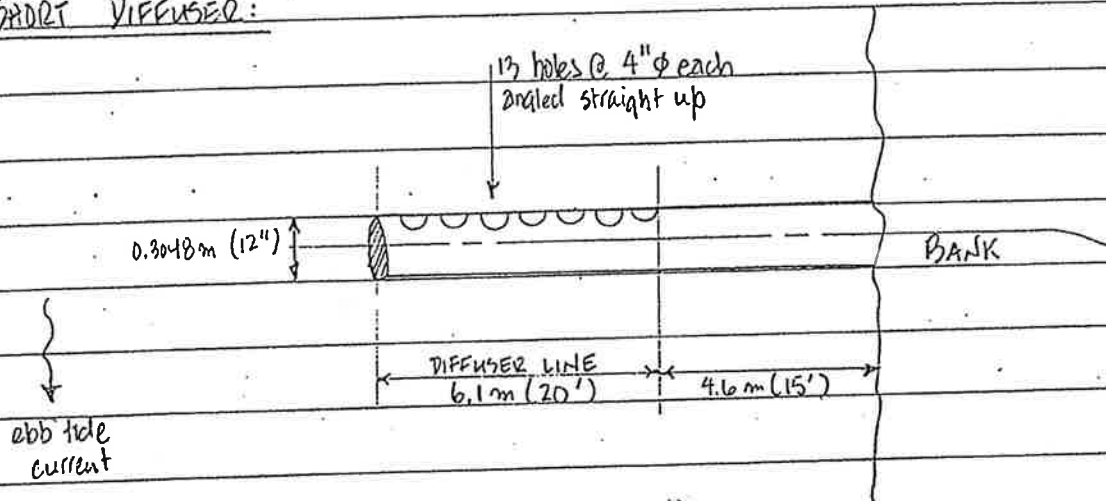 SHORT DIFFUSER:
13 holes @ 4"φ each
angled straight up
0.3048m (12")
BANK
DIFFUSER LINE
6.1m (20')
4.6m (15')
ebb tide
current